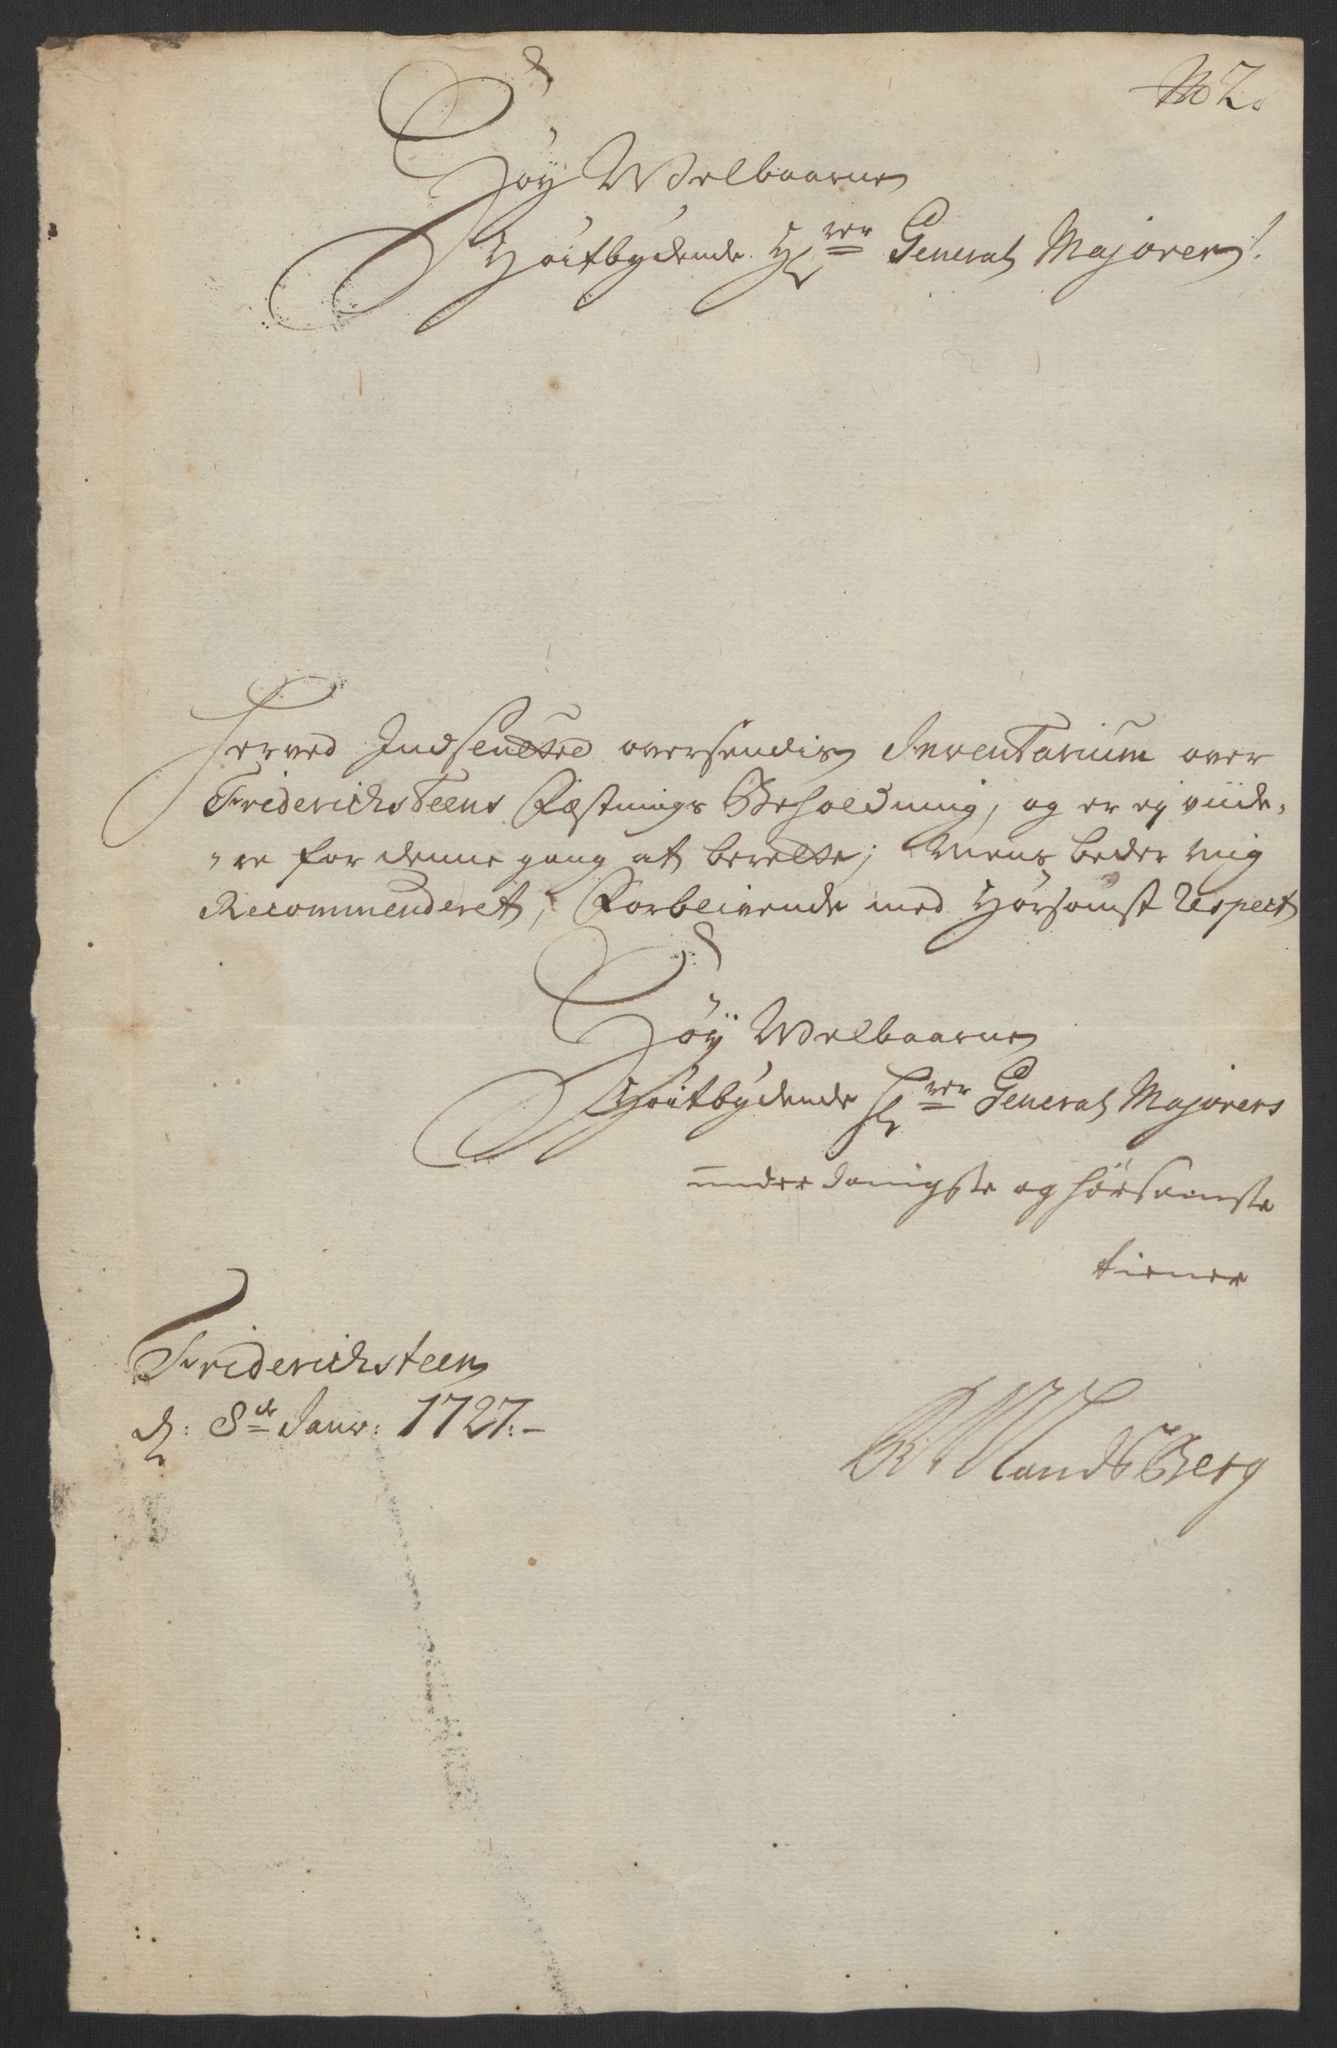 No 2.
Høy Welbaarne
Høitbydende Hrer General Majorer!
Herved Indsendtes oversendis Inventarium over
Friderichsteens Fæstnings Beholdning, og er ej viide-
-re for denne gang at berette; Mens beder mig
Recommenderet, Forbeivende med Hørsomst Respect
Høÿ Welbaarne
Høitbydende Hrer General Majorers
underdanigste og hörsamste
tiener
Friderichsteen
d: 8de Janv: 1727.-
LandsBerg